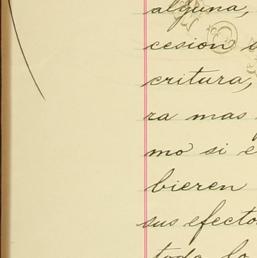 alguna,
cesion
critura,
ra mas
mo si
bieren
sus efecto
todo lo